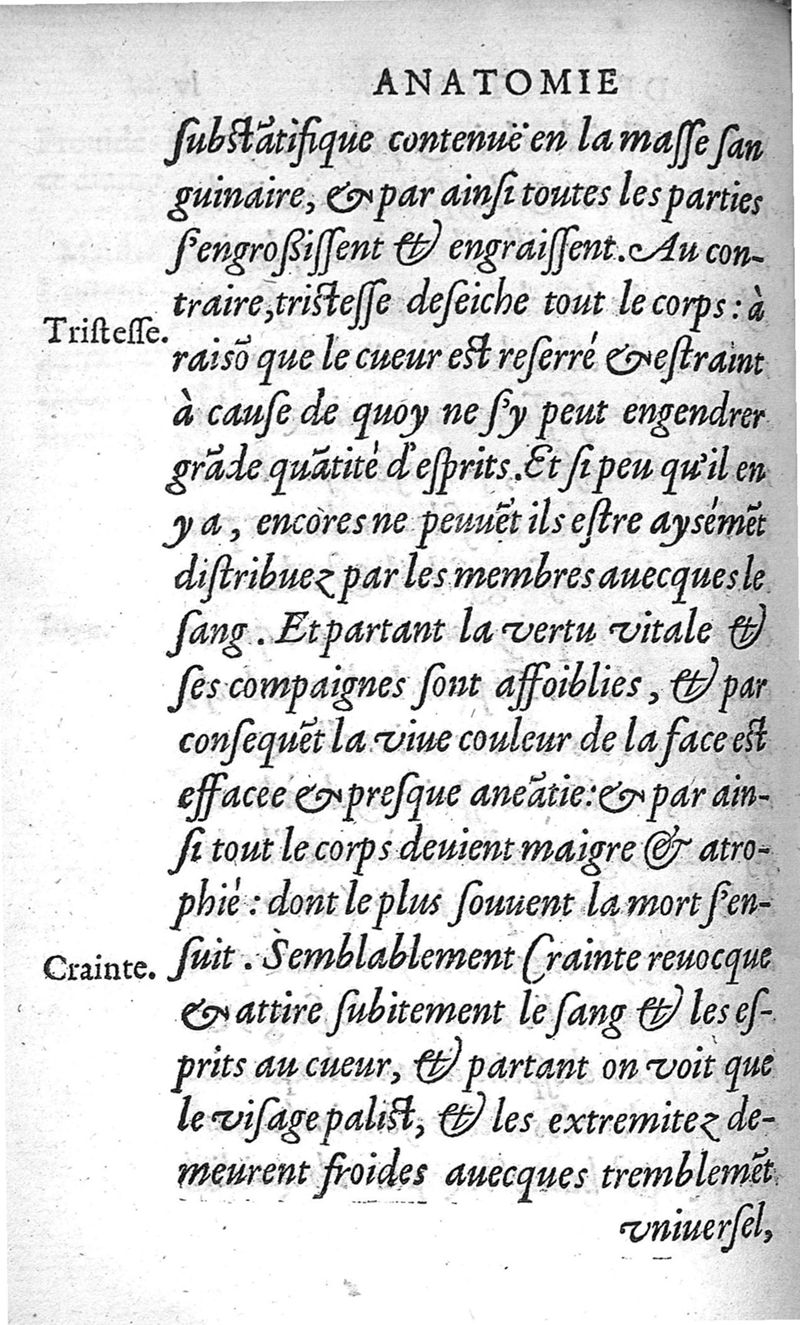 ANATOMIE
ſubſtãtifique contenuë en la maſſe ſan
guinaire, & par ainſi toutes les parties
ſ'engroſſiſſent & engraiſſent. Au con-
traire, triſteſſe deſeiche tout le corps : à
Triſteſſe.
raisõ que le cueur eſt reſerré & eſtraint
à cauſe de quoy ne ſ'y peut engendrer
grãde quãtité d'eſprits. Et ſi peu qu'il en
y a, encores ne peuuẽt ils eſtre aysémẽt
diſtribuez par les membres auecques le
ſang. Et partant la vertu vitale &
ſes compaignes ſont affoiblies, & par
conſequẽt la viue couleur de la face eſt
effacee & preſque aneãtie: & par ain-
ſi tout le corps deuient maigre & atro-
phié : dont le plus ſouuent la mort ſ'en-
ſuit. Semblablement Crainte reuocque
Crainte.
& attire ſubitement le ſang & les eſ-
prits au cueur, & partant on voit que
le viſage paliſt, & les extremitez de-
meurent froides auecques tremblemẽt
vniuerſel,